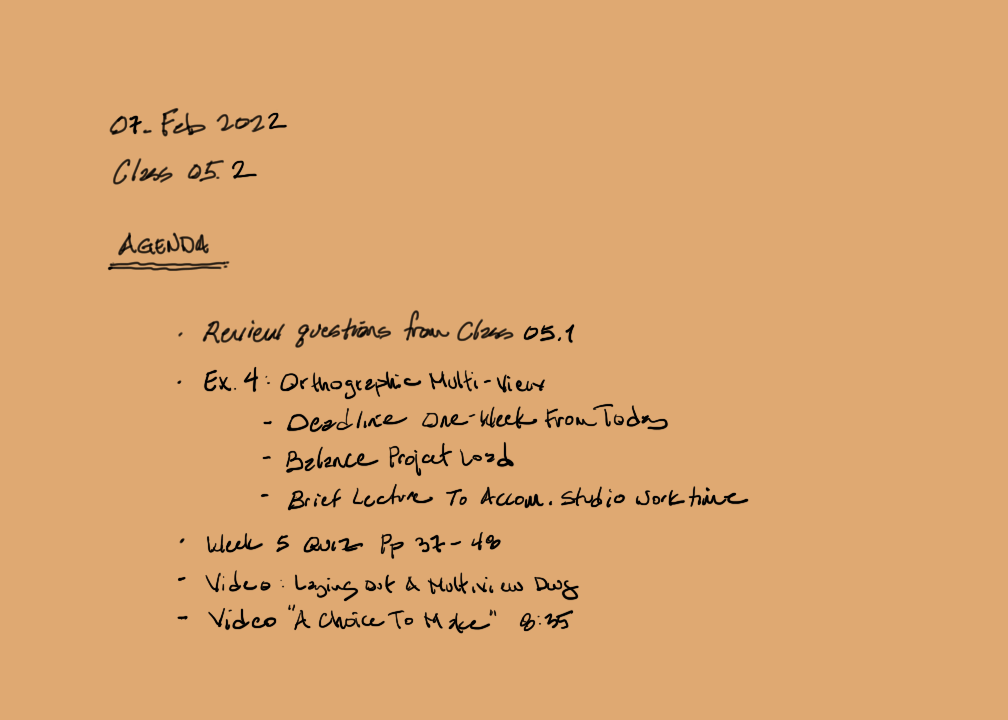 07- Feb 2022
Class 05.2
AGENDA
· Review questions from Class 05.1
· Ex. 4: Orthographic Multi-View
- Deadline One-Week From Today
- Balance Project Load
- Brief Lecture To Accom. Studio work time
· Week 5 Quiz Pp 37-48
- Video: Laying Out A Multiview Dwg
- Video "A Choice To Make" 8:35